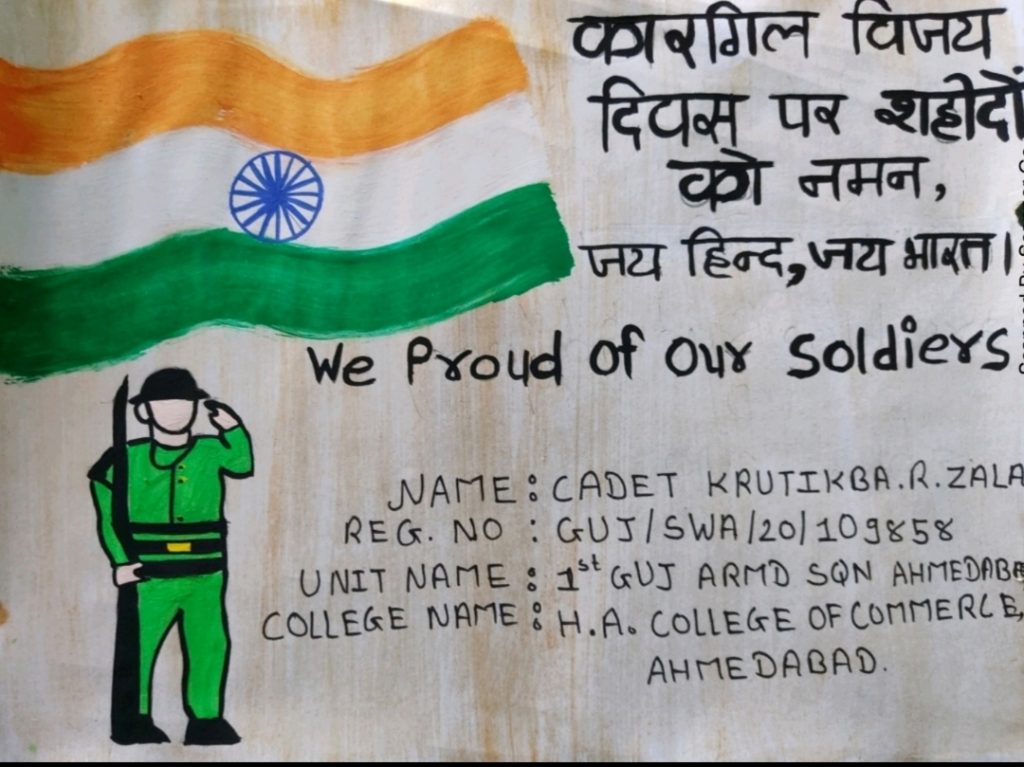 कारगिल विजय
दिवस पर शहीदों
को नमन,
जय हिन्द, जय भारत।
We Proud of Our Soldiers
NAME : CADET KRUTIKBA.R.ZALA
REG. NO : GUJ/SWA/20/109858
UNIT NAME : 1st GUJ ARMD SQN AHMEDABA
COLLEGE NAME : H.A. COLLEGE OF COMMERCE,
AHMEDABAD.